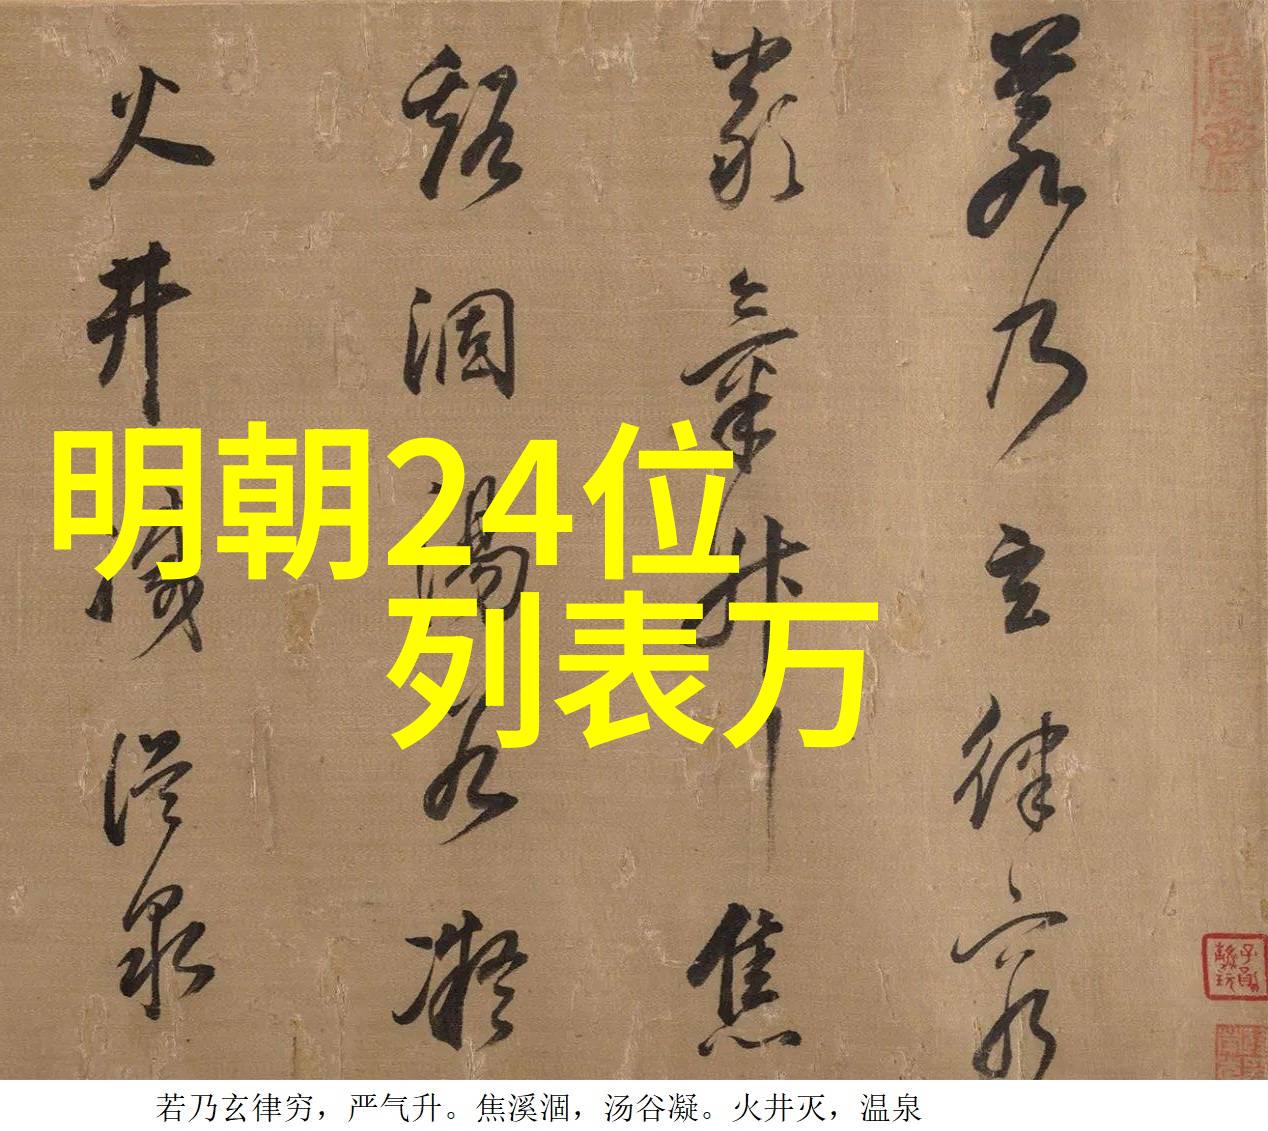 若乃玄律穷
严气升焦
溪涸汤谷凝
火井灭温泉
明朝24位
列表万
子孫
若乃玄律穷，严气升。焦溪涸，汤谷凝。火井灭，温泉